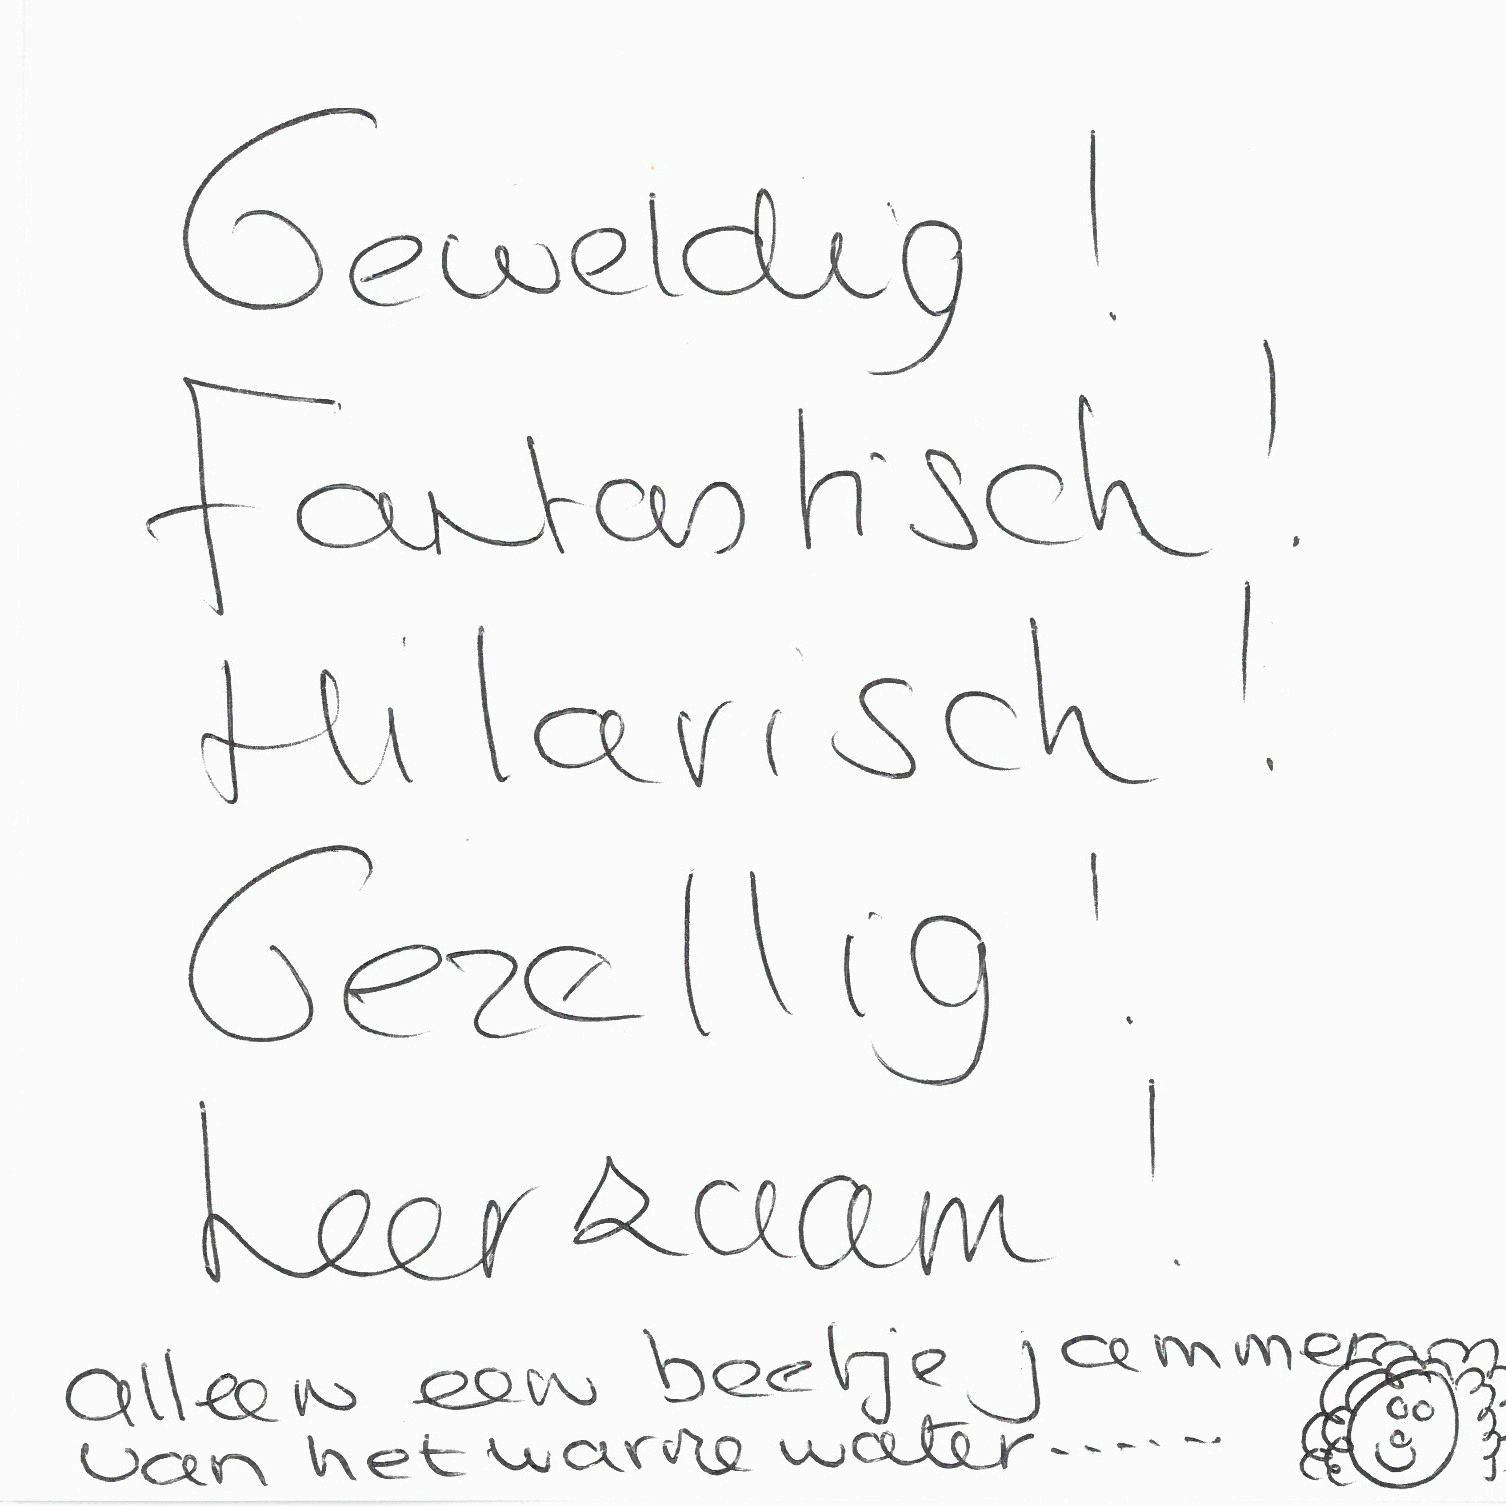 Geweldig !
Fantastisch !
Hilarisch !
Gezellig !
Leerzaam !
alleen een beetje jammer
van het warme water......